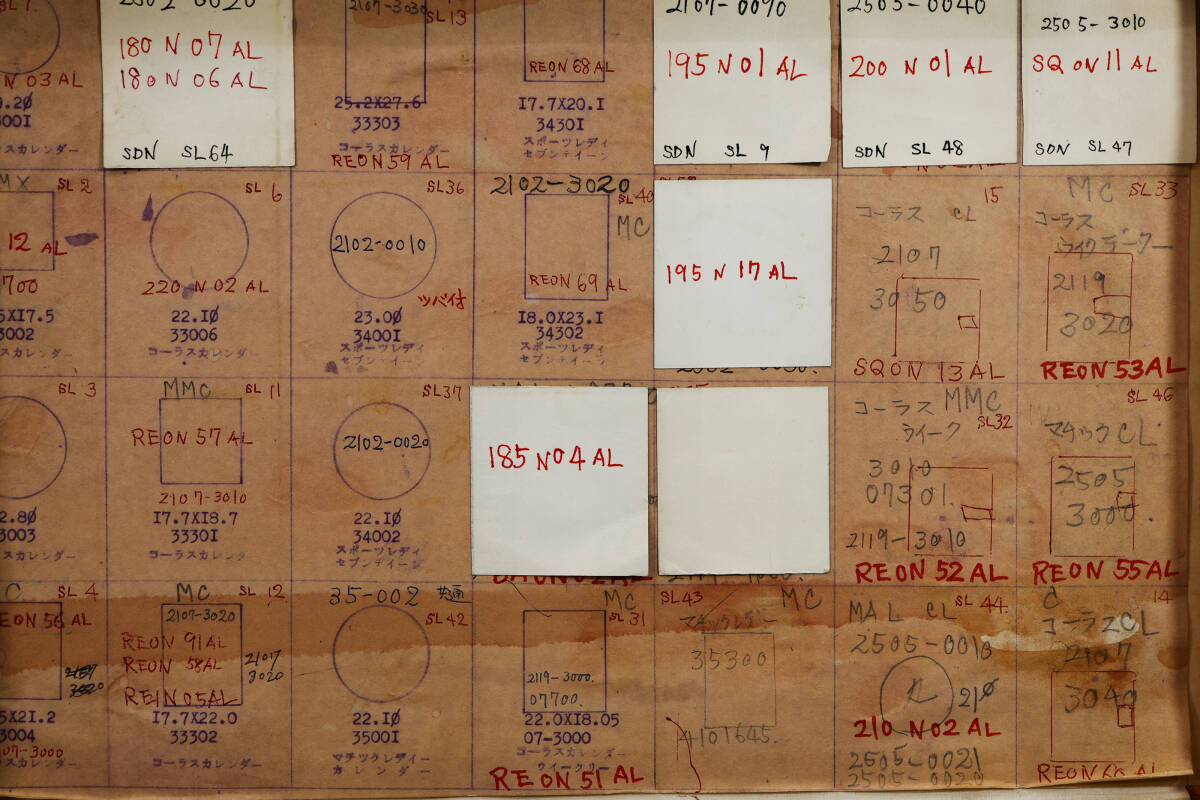 N 03 AL
180 N 07 AL
180 N 06 AL
SDN SL 64
2107-3030
SL 13
25.2X27.6
33303
コーラスカレンダー
REON 59 AL
REON 68 AL
17.7X20.1
34301
スポーツレディ
セブンティーン
2107-0090
195 N 01 AL
SDN SL 9
2503-0040
200 N 01 AL
SDN SL 48
2505-3010
SQ ON 11 AL
SDN SL 47
SL 2
12 AL
700
3002
SL 6
220 N 02 AL
22.10
33006
コーラスカレンダー
SL36
2102-0010
ツバ付
23.00
34001
スポーツレディ
セブンティーン
2102-3020
SL 40
MC
REON 69 AL
18.0X23.1
34302
スポーツレディ
セブンティーン
195 N 17 AL
15
コーラス CL
2107
3050
SQON 13 AL
MC SL33
コーラス
2119
3020
REON 53 AL
SL 3
3003
MMC SL 11
REON 57 AL
2107-3010
17.7X18.7
33301
コーラスカレンダ
SL37
2102-0020
22.10
34002
スポーツレディ
セブンティーン
185 N 04 AL
コーラス MMC
ウイーク SL32
3010
07301.
2119-3010
REON 52 AL
SL 46
マチック CL
2505
3000.
REON 55 AL
C SL 4
EON 56 AL
3004
07-3000
MC SL 12
2107-3020
REON 91 AL
REON 58 AL
2107
3020
REIN 05 AL
17.7X22.0
33302
コーラスカレンダー
35-002 共通
SL42
22.10
35001
マチックレディー
カレンダー
MC
SL 31
2119-3000.
07700.
22.0X18.05
07-3000
コーラスカレンダー
ウイークリー
REON 51 AL
SL43 MC
35300
4101645.
MAL CL SL 44
2505-0010
210
210 N 02 AL
2505-0021
2505-0020
C 14
コーラスCL
2107
3040